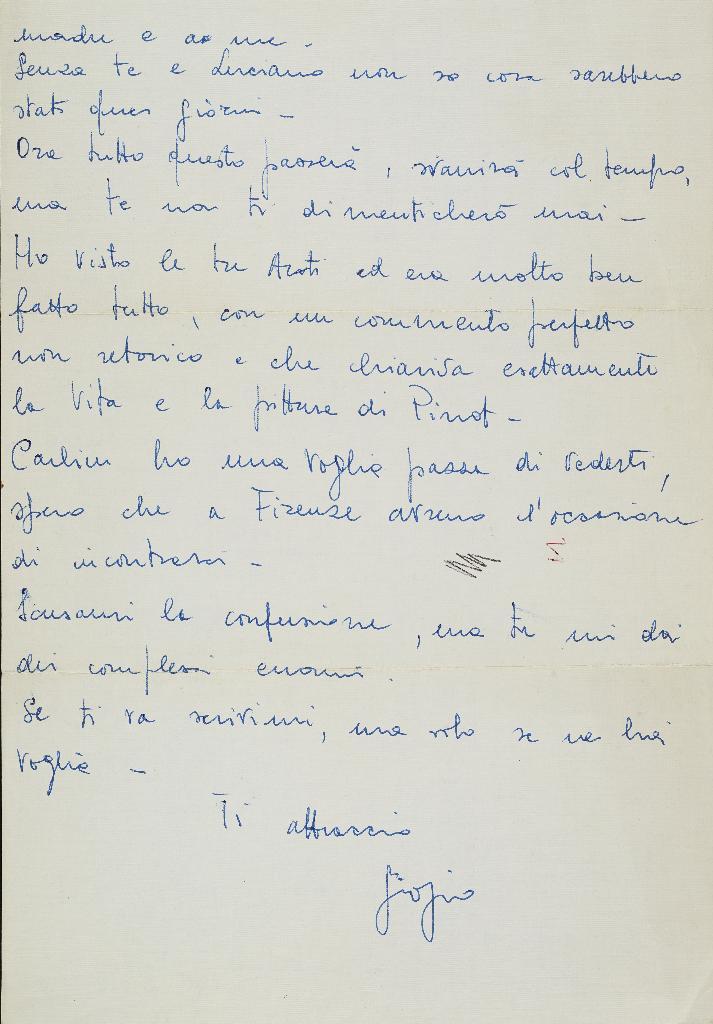 madre e a me.
Senza te e Luciano non so cosa sarebbero
stati quei giorni –
Ora tutto questo passerà, svanirà col tempo,
ma te non ti dimenticherò mai –
Ho visto le tre Arti ed era molto ben
fatto tutto, con un commento perfetto
non retorico e che chiariva esattamente
la Vita e la pittura di Pinot –
Carlin ho una voglia pazza di vederti,
spero che a Firenze avremo l'occasione
di incontrarci –
Scusami la confusione, ma tu mi dai
dei complessi enormi.
Se ti va scrivimi, ma solo se ne hai
voglia –
Ti abbraccio
Giorgio